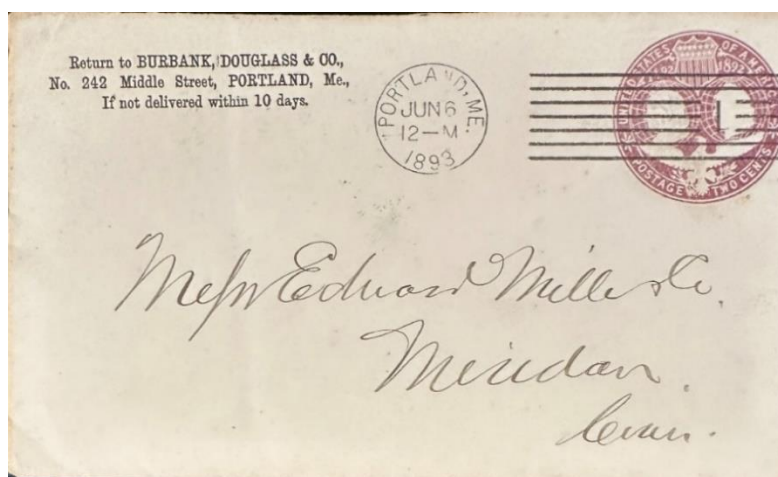 Return to BURBANK, DOUGLASS & CO.,
No. 242 Middle Street, PORTLAND, Me.,
If not delivered within 10 days.
PORTLAND, ME.
JUN 6
12—M
1893
1
UNITED STATES OF AMERICA
1892
POSTAGE TWO CENTS
Mess Edward Miller & Co.
Meridan.
Conn.